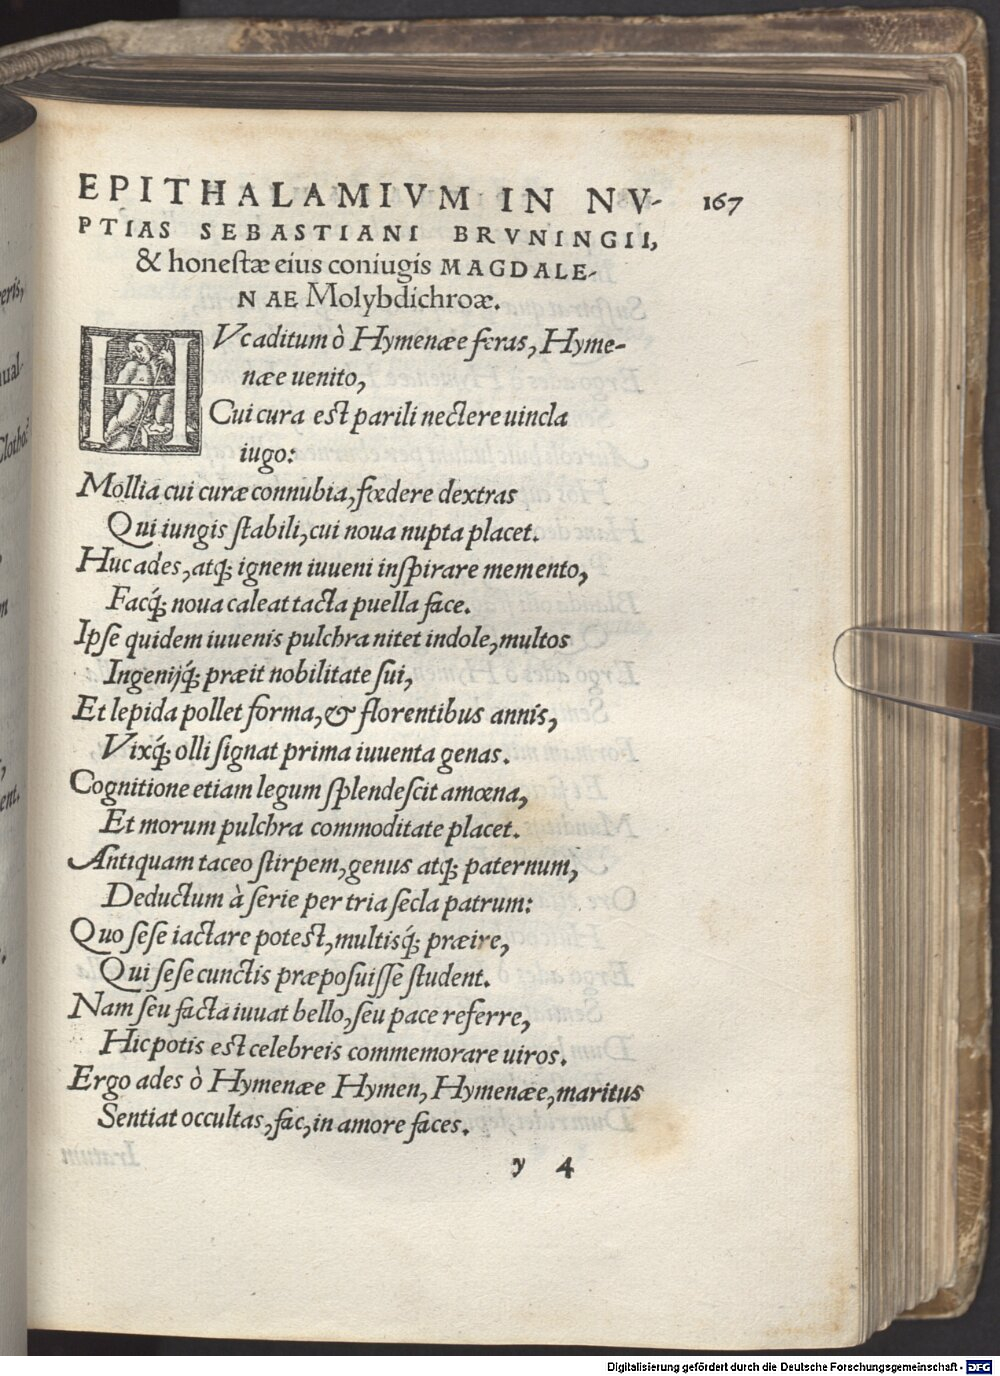 EPITHALAMIVM IN NV- 167
PTIAS SEBASTIANI BRVNINGII,
& honestæ eius coniugis MAGDALE-
NAE Molybdichroæ.
HVc aditum ò Hymenæe feras, Hyme-
næe uenito,
Cui cura est parili nectere uincla
iugo:
Mollia cui curæ connubia, fœdere dextras
Qui iungis stabili, cui noua nupta placet.
Huc ades, atq; ignem iuueni inspirare memento,
Facq́; noua caleat tacta puella face.
Ipse quidem iuuenis pulchra nitet indole, multos
Ingenijq́; præit nobilitate sui,
Et lepida pollet forma, & florentibus annis,
Vixq́; olli signat prima iuuenta genas.
Cognitione etiam legum splendescit amœna,
Et morum pulchra commoditate placet.
Antiquam taceo stirpem, genus atq; paternum,
Deductum à serie per tria secla patrum:
Quo sese iactare potest, multisq́; præire,
Qui sese cunctis præposuisse student.
Nam seu facta iuuat bello, seu pace referre,
Hic potis est celebreis commemorare uiros.
Ergo ades ò Hymenæe Hymen, Hymenæe, maritus
Sentiat occultas, fac, in amore faces.
y 4
Digitalisierung gefördert durch die Deutsche Forschungsgemeinschaft - DFG